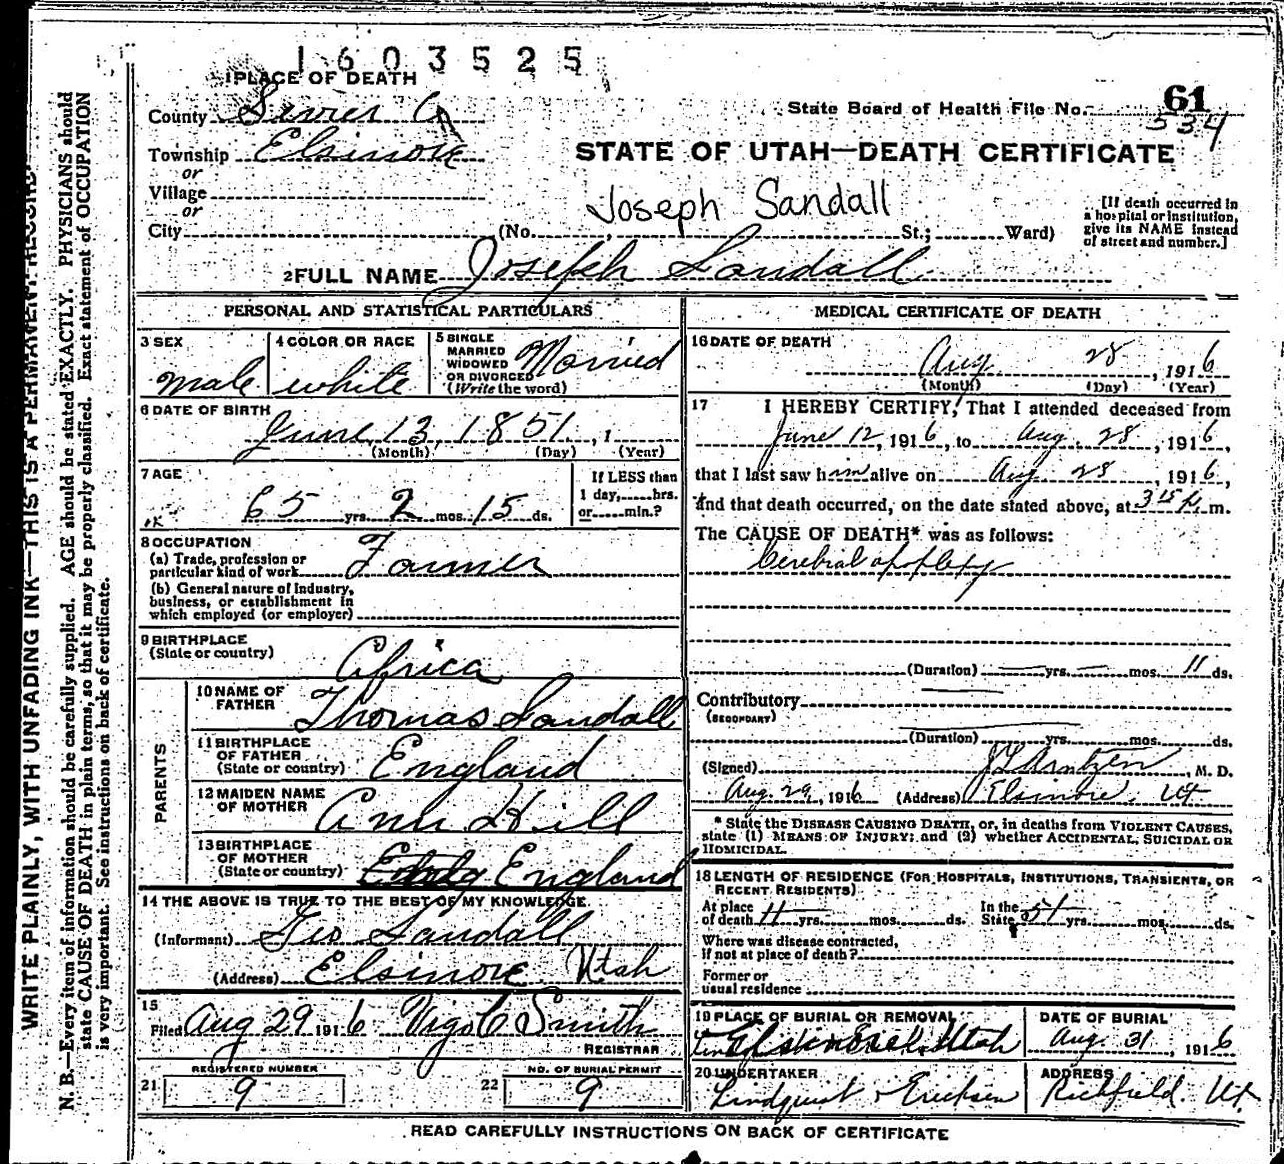 1603525
1 PLACE OF DEATH
County Sevier Co
State Board of Health File No. 61
534
Township Elsinore
or
Village
or
City
STATE OF UTAH—DEATH CERTIFICATE
Joseph Sandall
(No. St.; Ward)
[If death occurred in
a hospital or institution,
give its NAME instead
of street and number.]
2 FULL NAME Joseph Sandall
PERSONAL AND STATISTICAL PARTICULARS
3 SEX
Male
4 COLOR OR RACE
white
5 SINGLE
MARRIED
WIDOWED
OR DIVORCED
(Write the word)
Married
6 DATE OF BIRTH
June, 13, 1851, 1
(Month) (Day) (Year)
7 AGE
65 yrs. 2 mos. 15 ds.
If LESS than
1 day, hrs.
or min.?
8 OCCUPATION
(a) Trade, profession or
particular kind of work Farmer
(b) General nature of industry,
business, or establishment in
which employed (or employer)
9 BIRTHPLACE
(State or country)
Africa
PARENTS
10 NAME OF
FATHER
Thomas Sandall
11 BIRTHPLACE
OF FATHER
(State or country) England
12 MAIDEN NAME
OF MOTHER
Ann Hill
13 BIRTHPLACE
OF MOTHER
(State or country) England
14 THE ABOVE IS TRUE TO THE BEST OF MY KNOWLEDGE.
(Informant) Geo Sandall
(Address) Elsinore Utah
15
Filed Aug 29 1916 Vigo C Smith
REGISTRAR
REGISTERED NUMBER
21 9
NO. OF BURIAL PERMIT
22 9
MEDICAL CERTIFICATE OF DEATH
16 DATE OF DEATH
Aug 28, 1916
(Month) (Day) (Year)
17 I HEREBY CERTIFY, That I attended deceased from
June 12, 1916, to Aug. 28, 1916,
that I last saw him alive on Aug 28, 1916,
and that death occurred, on the date stated above, at 3 15 P. m.
The CAUSE OF DEATH* was as follows:
Cerebral apoplepy
(Duration) yrs. mos. 11 ds.
Contributory
(SECONDARY)
(Duration) yrs. mos. ds.
(Signed) , M. D.
Aug. 29, 1916 (Address) Elsinore, Ut
* State the DISEASE CAUSING DEATH, or, in deaths from VIOLENT CAUSES,
state (1) MEANS OF INJURY; and (2) whether ACCIDENTAL, SUICIDAL OR
HOMICIDAL.
18 LENGTH OF RESIDENCE (FOR HOSPITALS, INSTITUTIONS, TRANSIENTS, OR
RECENT RESIDENTS)
At place
of death 11 yrs. mos. ds.
In the
State 51 yrs. mos. ds.
Where was disease contracted,
if not at place of death?
Former or
usual residence
19 PLACE OF BURIAL OR REMOVAL
Utah
DATE OF BURIAL
Aug. 31, 1916
20 UNDERTAKER
Lindquist & Ericksen
ADDRESS
Richfield. Ut.
READ CAREFULLY INSTRUCTIONS ON BACK OF CERTIFICATE
WRITE PLAINLY, WITH UNFADING INK—THIS IS A PERMANENT RECORD
N. B.—Every item of information should be carefully supplied. AGE should be stated EXACTLY. PHYSICIANS should
state CAUSE OF DEATH in plain terms, so that it may be properly classified. Exact statement of OCCUPATION
is very important. See instructions on back of certificate.